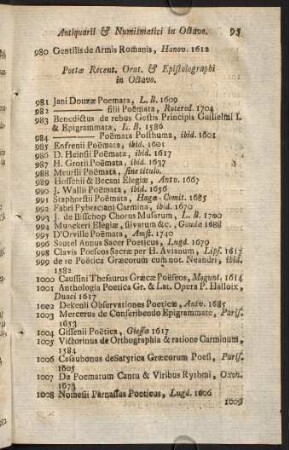 Antiquarii & Numismatici in Octavo. 95
980 Gentilis de Armis Romanis, Hanov. 1612
Poetæ Recent. Orat. & Epistolographi
in Octavo.
981 Jani Douzæ Poemata, L. B. 1609
982 —— filii Poëmata, Roterod. 1704
983 Benedictus de rebus Gestis Principis Guilielmi I.
& Epigrammata, L. B. 1586
984 —— Poëmata Posthuma, ibid. 1601
985 Enfrenii Poëmata, ibid. 1601
986 D. Heinsii Poëmata, ibid. 1617
987 H. Grotii Poëmata, ibid. 1637
988 Meursii Poëmata, sine titulo.
989 Hosschii & Becani Elegiæ, Antv. 1667
990 J. Wallii Poëmata, ibid. 1656
991 Staphorstii Poëmata, Hagæ-Comit. 1685
992 Fabri Pybraciani Carmina, ibid. 1670
993 J. de Bisschop Chorus Musarum, L. B. 1700
994 Munckeri Elegiæ, silvarum &c. Goudæ 1688
995 D'Orville Poëmata, Amst. 1740
996 Sautel Annus Sacer Poeticus, Lugd. 1679
998 Clavis Poëseos Sacræ per H. Avianum, Lips. 1617
999 de re Poëtica Græcorum cum not. Neandri, ibid.
1582
1000 Caussini Thesaurus Græcæ Poëseos, Magunt. 1614
1001 Anthologia Poetica Gr. & Lat. Opera P. Halloix,
Duaci 1617
1002 Dekenii Observationes Poeticæ, Antv. 1685
1003 Mercerus de Conscribendo Epigrammate, Paris.
1653
1004 Gissenii Poëtica, Giessæ 1617
1005 Victorinus de Orthographia & ratione Carminum,
1584
1006 Casaubonus de Satyrica Græcorum Poesi, Paris.
1605
1007 De Poematum Cantu & Viribus Rythmi, Oxon.
1673
1008 Nomesii Parnassus Poeticus, Lugd. 1606
1009